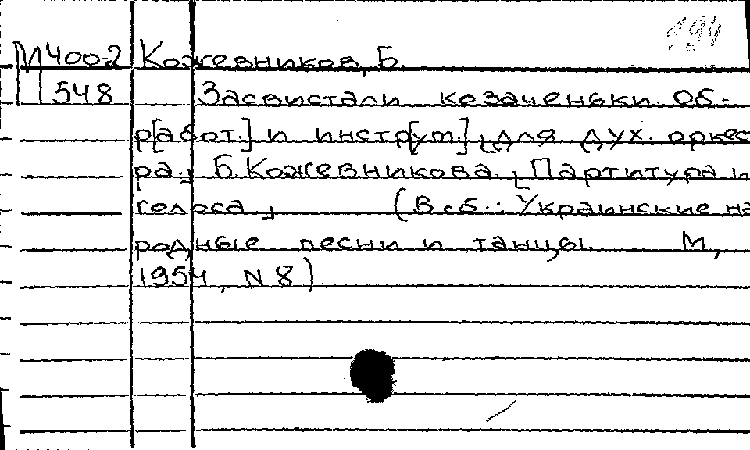 194
М4002 Кожевников, Б.
548 Засвистали козаченьки Об-
р[абот.] и инстр[ум.] для дух. оркест
ра. Б. Кожевникова. Партитура и
голоса. (В сб.: Украинские на
родные песни и танцы. М.,
1954, N 8)